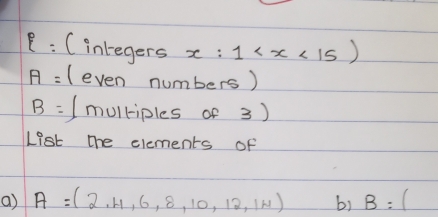 ξ = ( integers x : 1 < x < 15 )
A = ( even numbers )
B = ( multiples of 3 )
List the elements of
a) A = ( 2, 4, 6, 8, 10, 12, 14 ) b) B = (